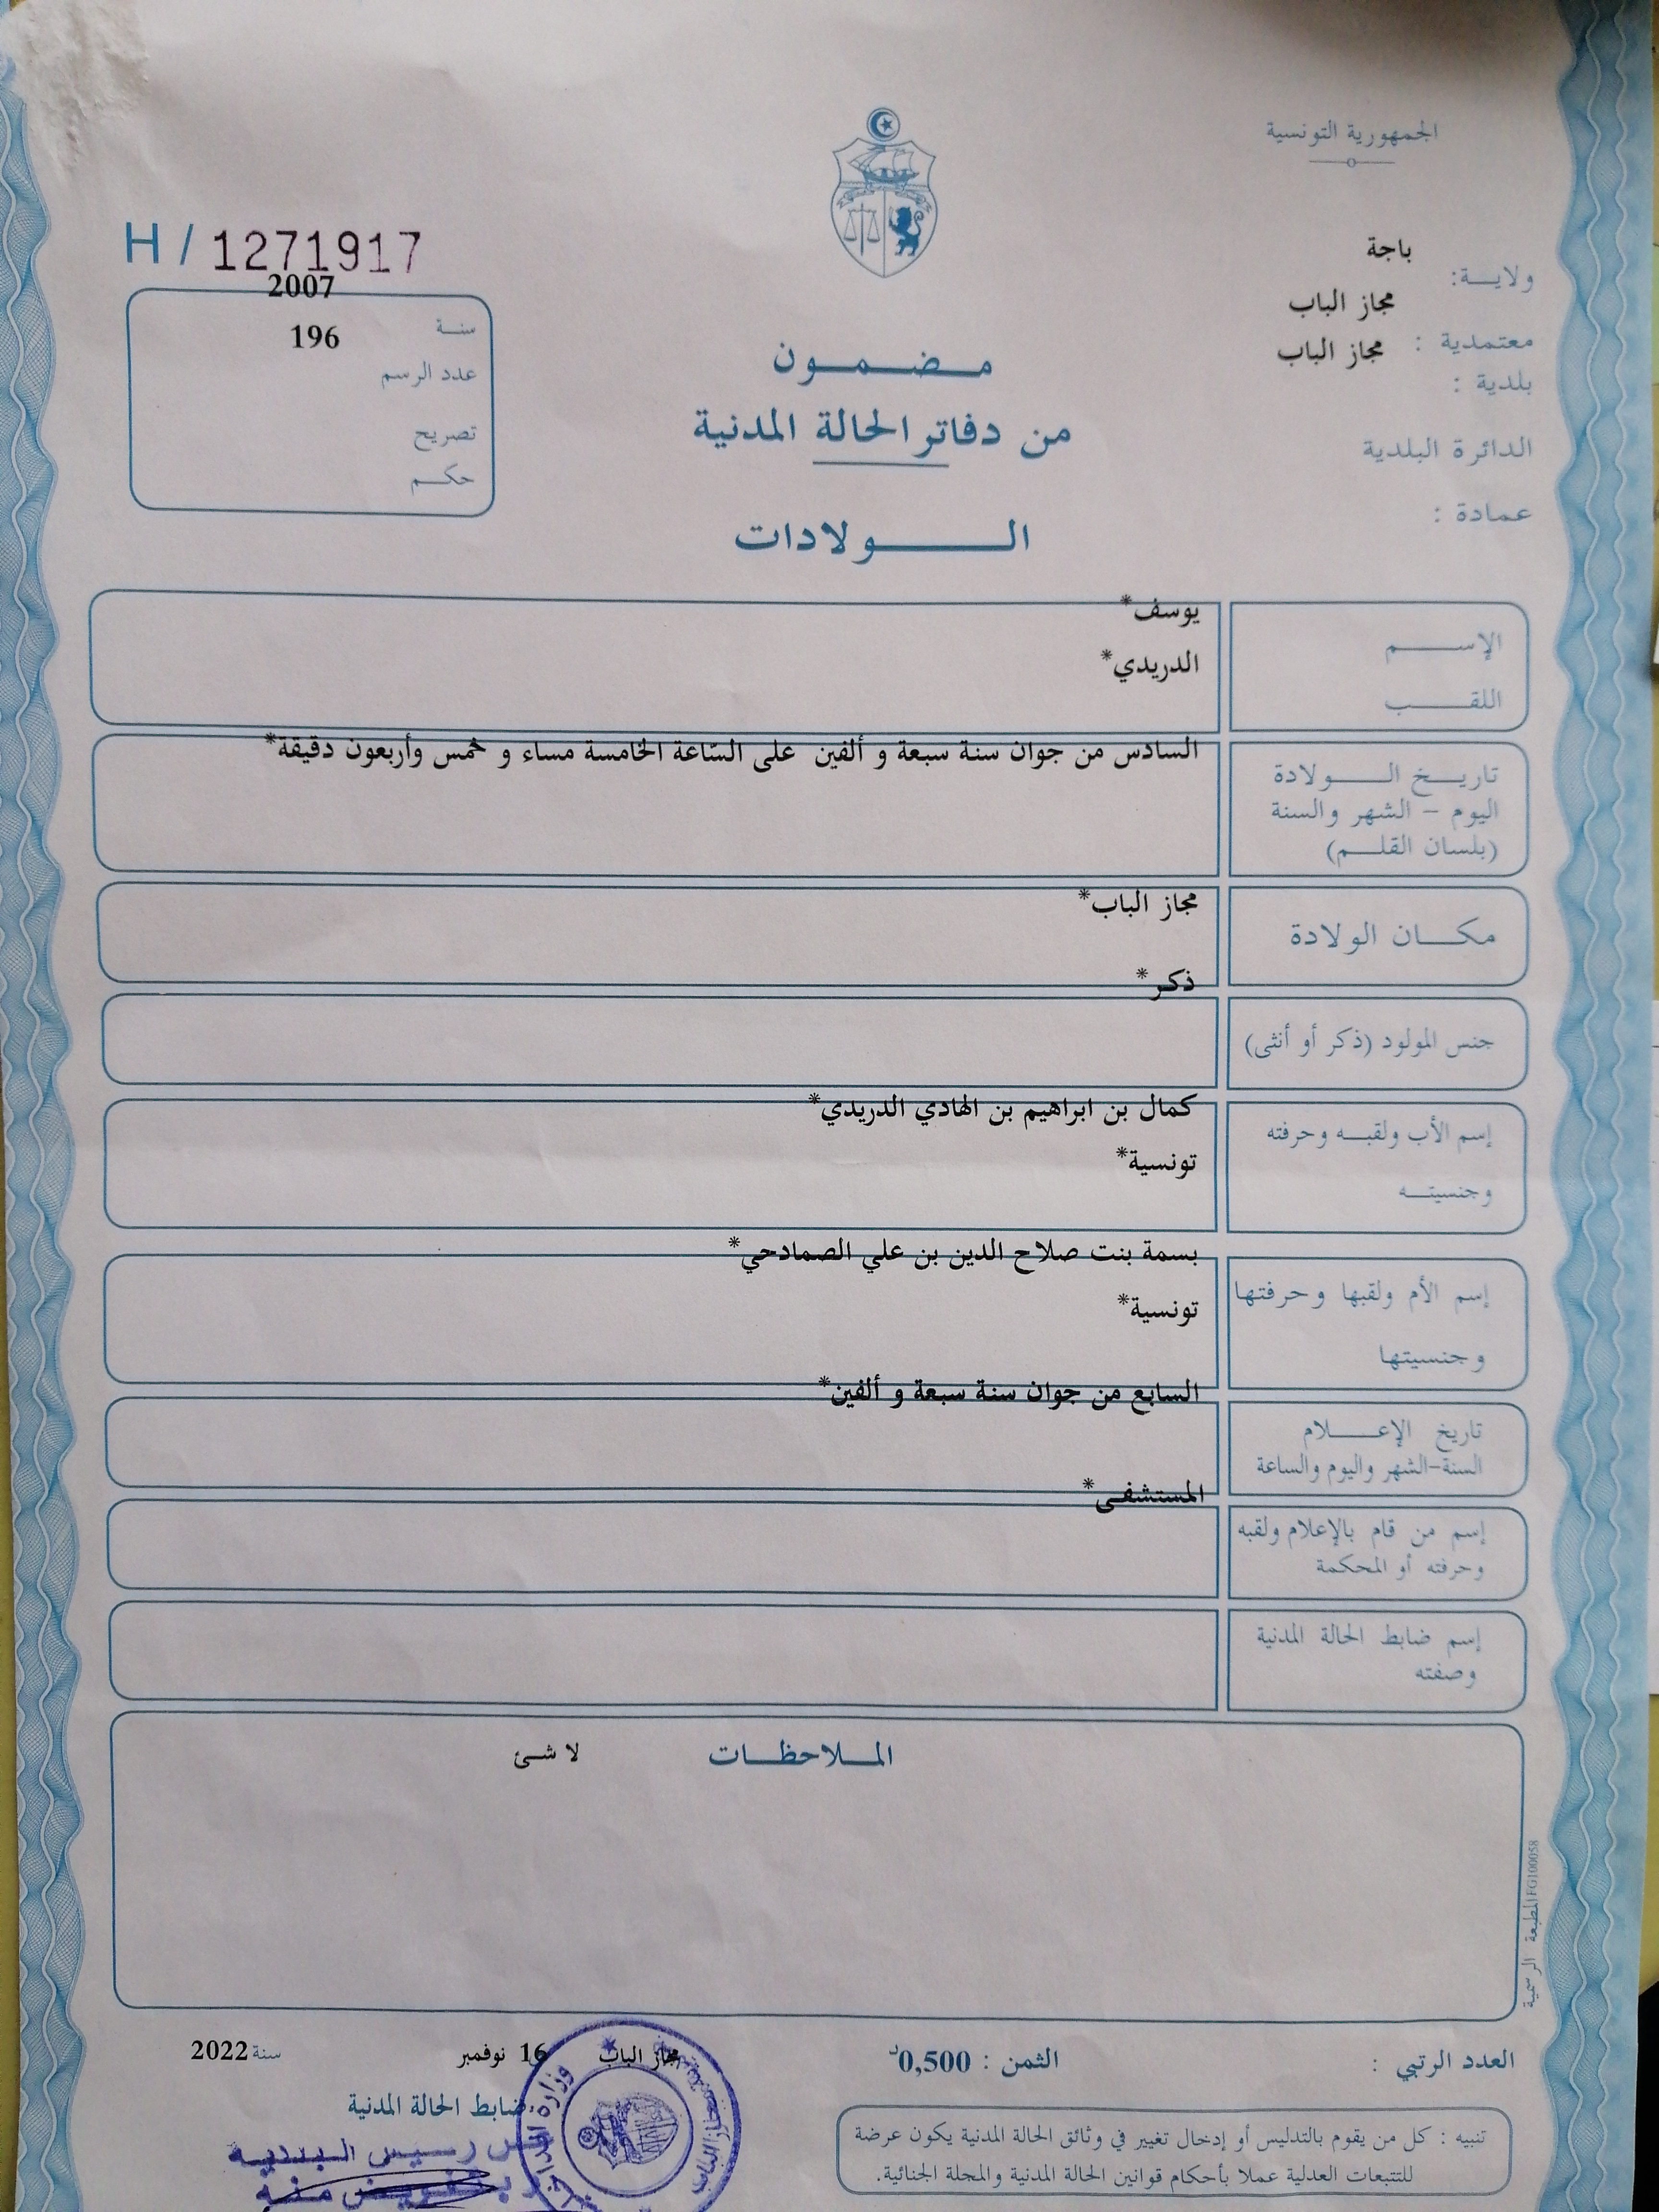 الجمهورية التونسية
ولايـــة: باجة
معتمدية : مجاز الباب
بلدية : مجاز الباب
الدائرة البلدية
عمادة :
H / 1271917
سنـــة 2007
عدد الرسم 196
تصريح
حكـــم
مـــضـــمـــون
من دفاتر الحالة المدنية
الـــــولادات
الإســـــم يوسف*
اللقـــــب الدريدي*
تاريـــخ الـــــولادة السادس من جوان سنة سبعة و ألفين على السّاعة الخامسة مساء و خمس وأربعون دقيقة*
اليوم – الشهر والسنة
(بلسان القلـــم)
مكـــان الولادة مجاز الباب*
جنس المولود (ذكر أو أنثى) ذكر*
إسم الأب ولقبـــه وحرفته كمال بن ابراهيم بن الهادي الدريدي*
وجنسيتـــه تونسية*
إسم الأم ولقبها وحرفتها بسمة بنت صلاح الدين بن علي الصمادحي*
وجنسيتها تونسية*
تاريخ الإعـــــلام السابع من جوان سنة سبعة و ألفين*
السنة-الشهر واليوم والساعة
إسم من قام بالإعلام ولقبه المستشفى*
وحرفته أو المحكمة
إسم ضابط الحالة المدنية
وصفته
المـــلاحظـــات لا شئ
المطبعة الرسمية FG100058
العدد الرتبي :
الثمن : 0,500د
مجاز الباب 16 نوفمبر سنة 2022
ضابط الحالة المدنية
تنبيه : كل من يقوم بالتدليس أو إدخال تغيير في وثائق الحالة المدنية يكون عرضة
للتتبعات العدلية عملا بأحكام قوانين الحالة المدنية والمجلة الجنائية.
وزارة
رئيس البلدية
منه